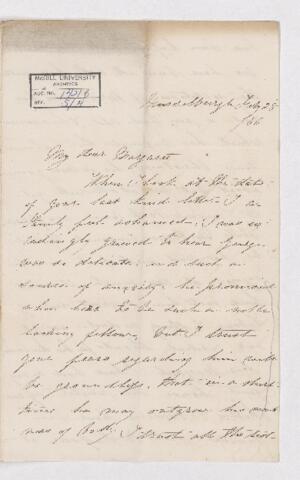 McGILL UNIVERSITY
ARCHIVES
ACC. NO.
REF.
Musselburgh July 28
/66
My dear Margaret
When I look at the date
of your last kind letter I am
truly quite ashamed. I was ex-
ceedingly grieved to hear George
was so delicate and such a
source of anxiety. he promised
when here to be such a noble
looking fellow, but I trust
your fears regarding him will
be groundless, that in a short
time he may outgrow his weak
ness of body. I trust all the rest